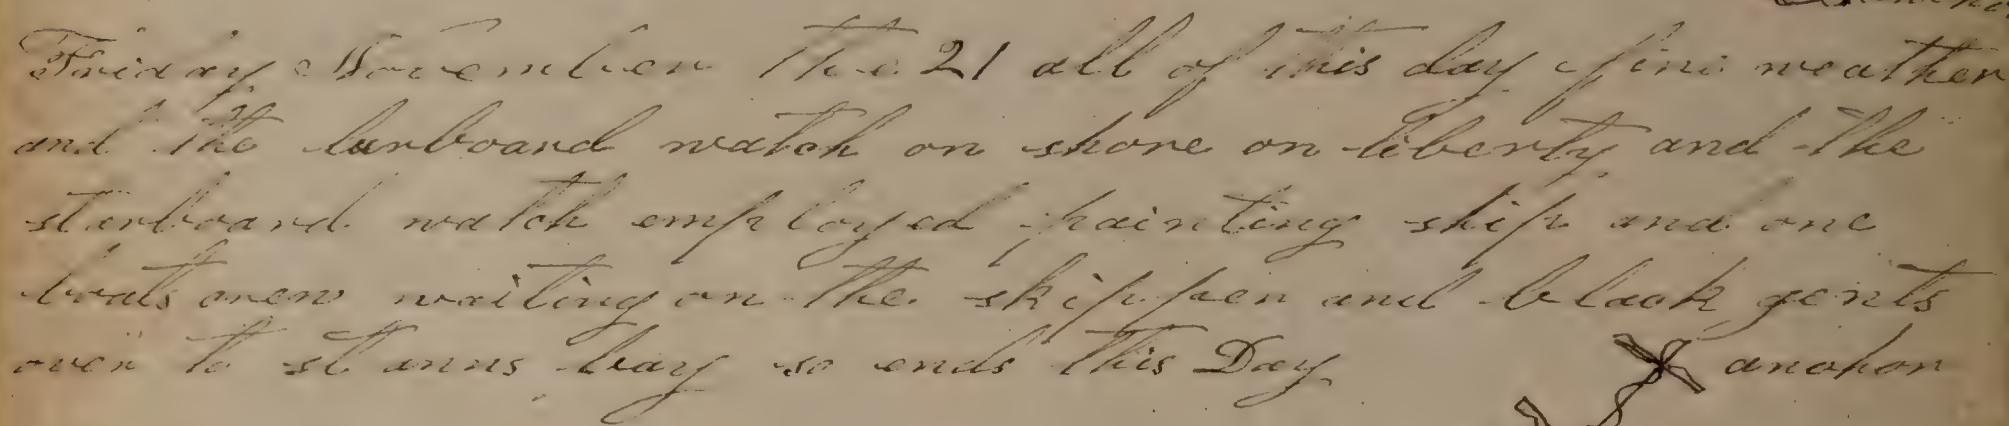 Friday November the 21 all of this day fine weather
and the larboard watch on shore on liberty and the
starboard watch employed painting ship and one
boats crew waiting on the skipper and black gents
over to st anns bay so ends this Day
anchor